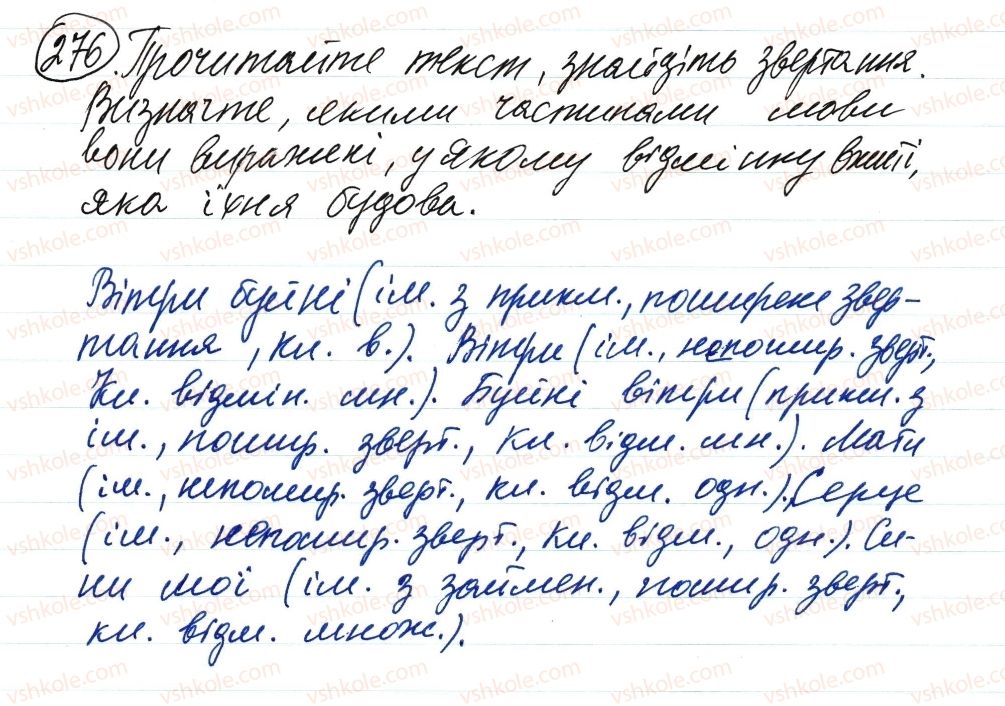 276. Прочитайте текст, знайдіть звертання.
Визначте, якими частинами мови
вони виражені, у якому відмінку вжиті,
яка їхня будова.
Вітри буйні (ім. з прикм., поширене звер-
тання, кл. в.). Вітри (ім., непошир. зверт.,
Кл. відмін. мн.). Буйні вітри (прикм. з
ім., пошир. зверт., кл. відм. мн.). Мати
(ім., непошир. зверт., кл. відм. одн.). Серце
(ім., непошир. зверт., кл. відм., одн.). Си-
ни мої (ім. з займен., пошир. зверт.,
кл. відм. множ.).
vshkole.com